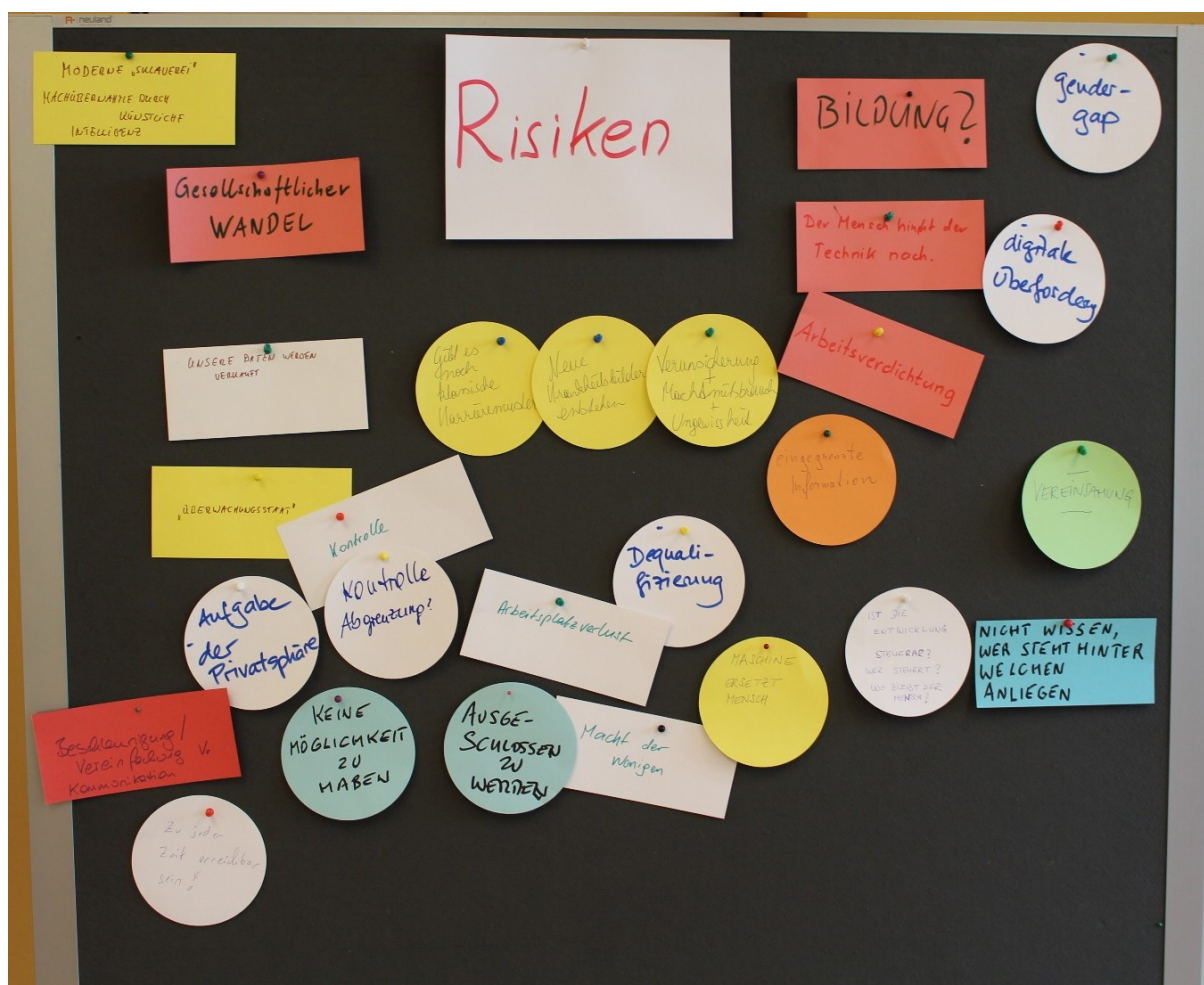 neuland
MODERNE „SKLAVEREI"
MACHÜBERNAHME DURCH
KÜNSTLICHE
INTELLIGENZ
Risiken
BILDUNG?
gender-
gap
Gesellschaftlicher
WANDEL
Der Mensch hinkt der
Technik nach.
digitale
Überforderg
Arbeitsverdichtung
UNSERE DATEN WERDEN
VERKAUFT
Gibt es
noch
klassische
Neue
Krankheitsbilder
entstehen
Verunsicherung
+
Machtmißbrauch
+
Ungewissheit
eingegrenzte
Information
VEREINSAMUNG
„ÜBERWACHUNGSSTAAT"
Kontrolle
Kontrolle
Abgrenzung?
Aufgabe
der
Privatsphäre
Dequali-
fizierung
Arbeitsplatzverlust
MASCHINE
ERSETZT
MENSCH
IST DIE
ENTWICKLUNG
STEUERBAR?
WER STEUERT?
WO BLEIBT DER
MENSCH?
NICHT WISSEN,
WER STEHT HINTER
WELCHEN
ANLIEGEN
Beschleunigung/
Vereinfachung v.
Kommunikation
KEINE
MÖGLICHKEIT
ZU
HABEN
AUSGE-
SCHLOSSEN
ZU
WERDEN
Macht der
Wenigen
Zu jeder
Zeit erreichbar
sein!